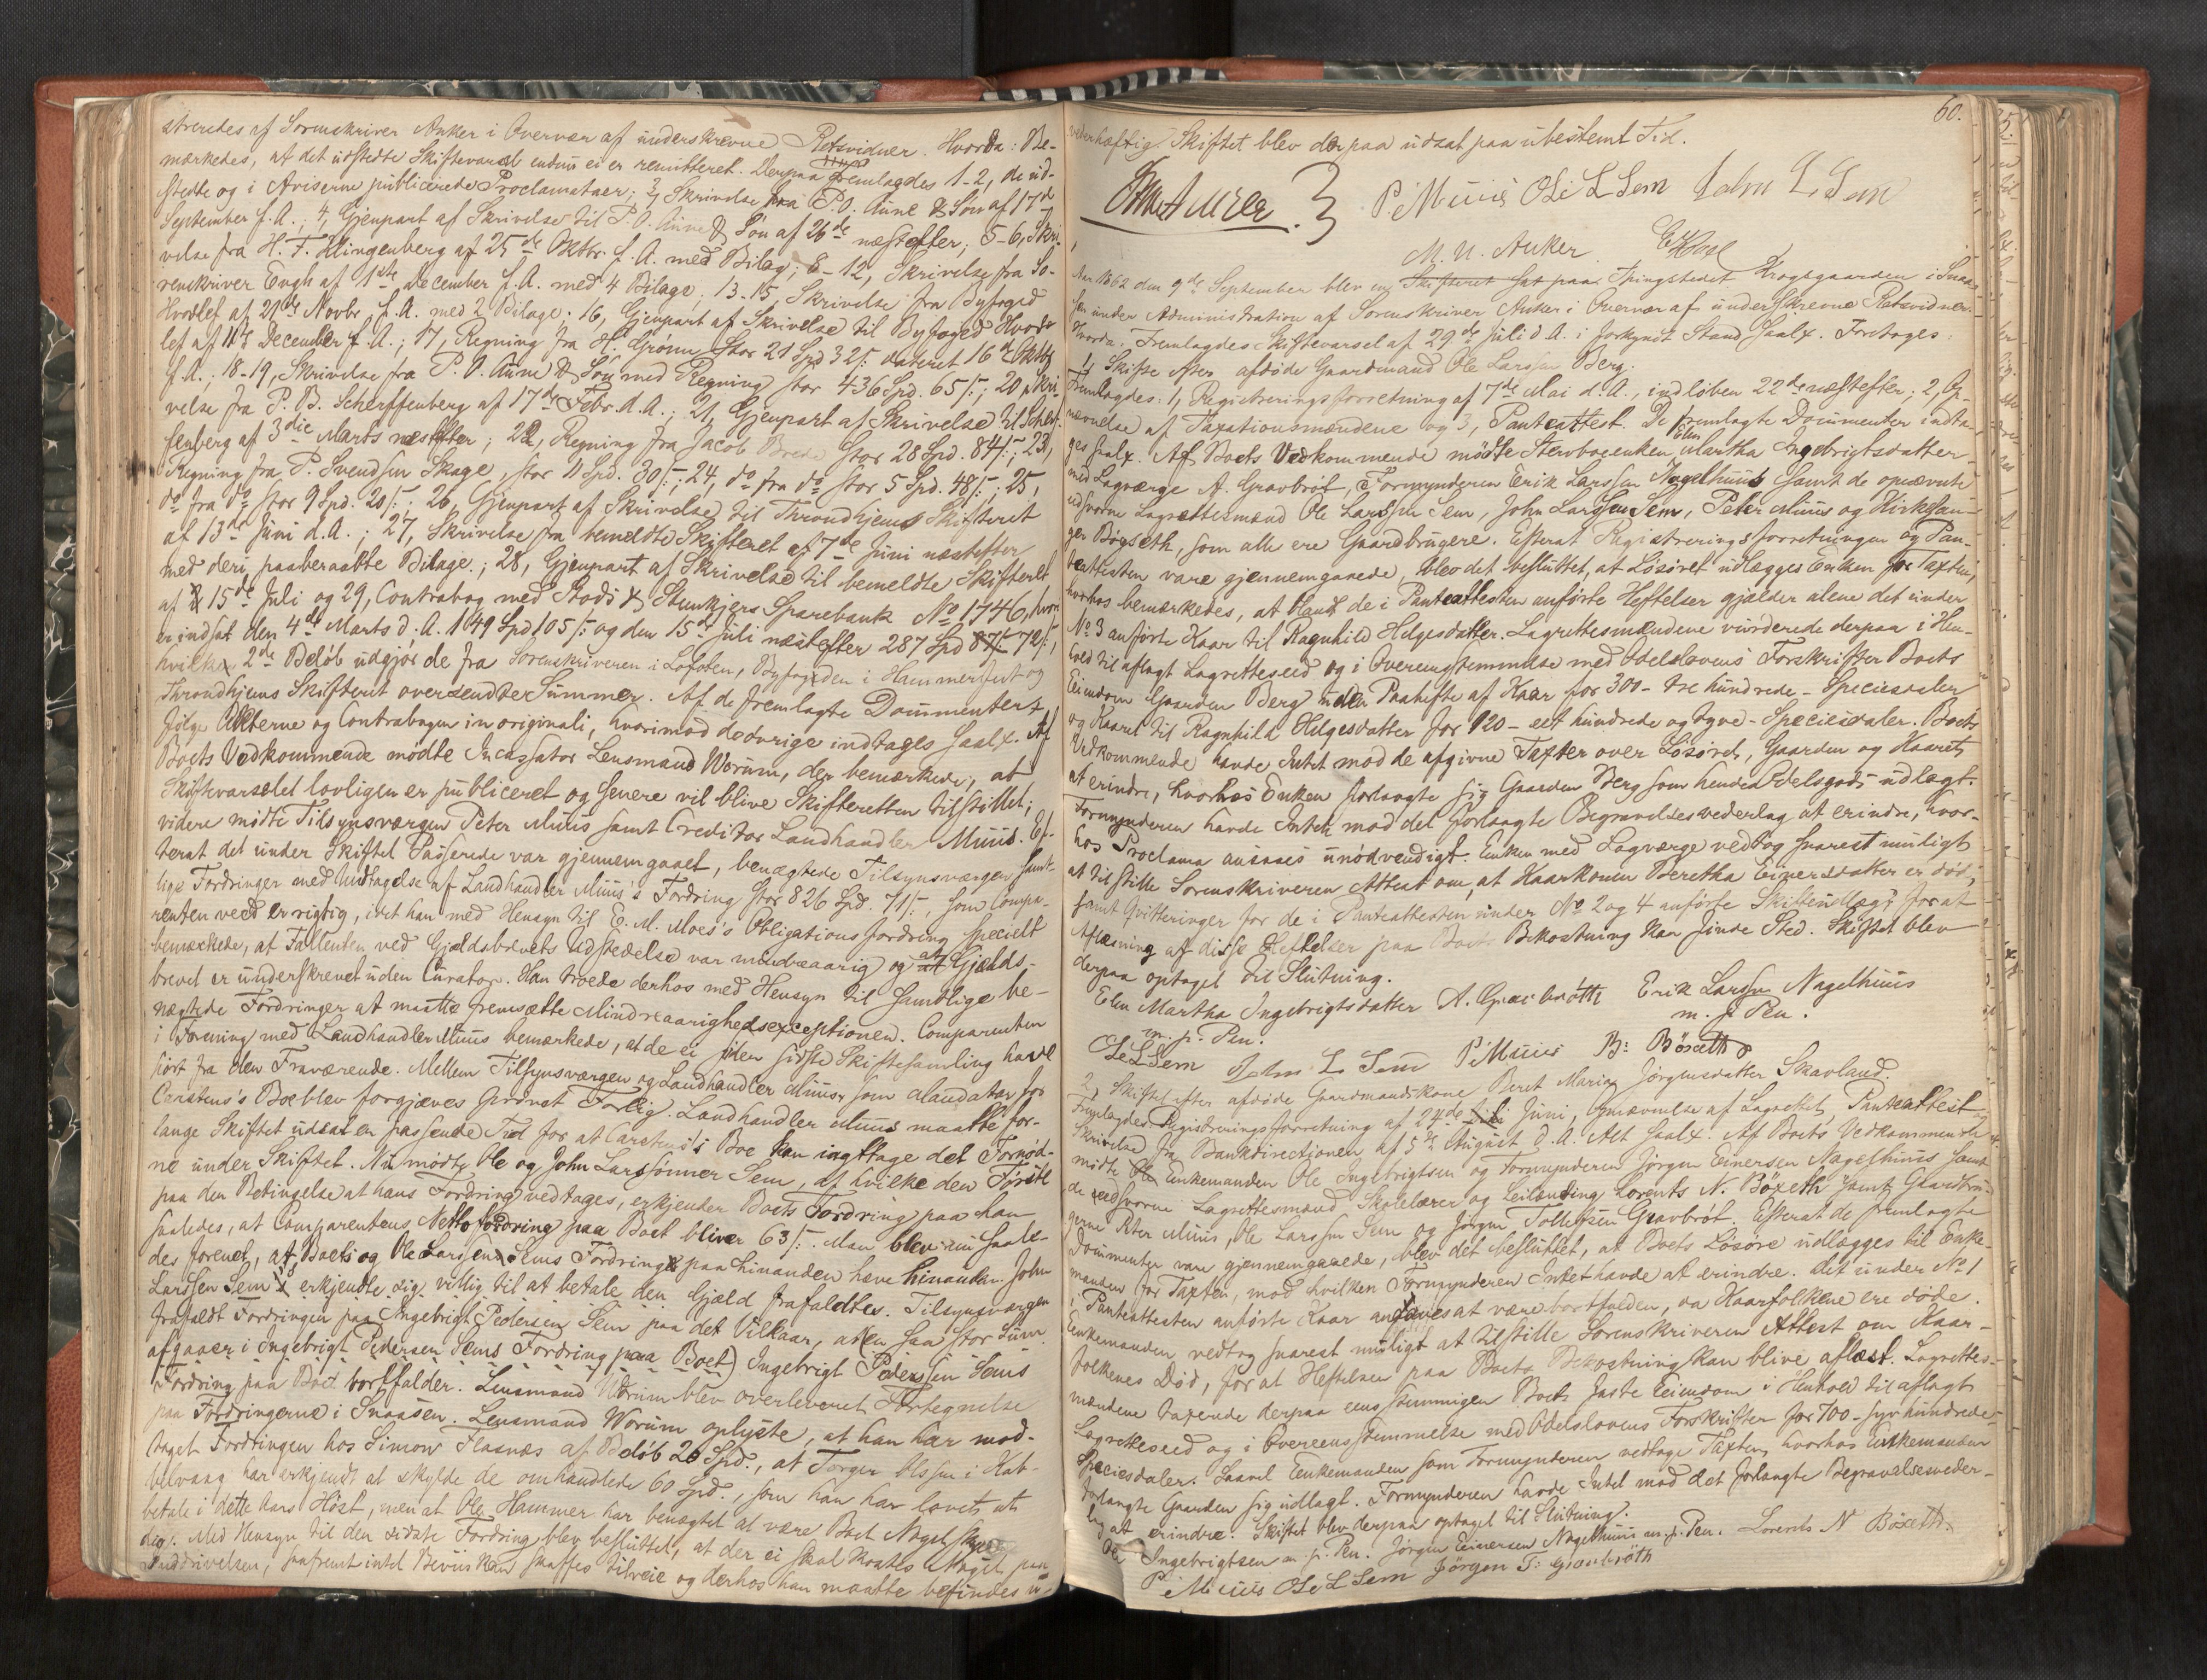 streredes af Sorenskriver Anker i Overvær af underskrevne Retsvidner. Hvorda: Be-
mærkedes, at det udstedte Skiftevarsel endnu ei er remitteret. Derpaa fremlagdes 1-2, de ud-
stedte og i Aviserne publicerede Proclamataer; 3, Skrivelse fra P.O. Aune & Søn af 17de
September f.A.; 4, Gjenpart af Skrivelse til P.O. Aune & Søn af 26de næstefter; 5-6, Skri-
velse fra H. F. Klingenberg af 25de Oktbr. f.A. med Bilag; 8-12, Skrivelse fra So-
renskriver Engh af 1ste December f.A. med 4 Bilage; 13-15, Skrivelse fra Byfoged
Hvoslef af 21de Novbr. f.A. med 2 Bilage; 16, Gjenpart af Skrivelse til Byfoged Hvos-
lef af 11te December f.A.; 17, Regning fra H. Grønn stor 21 Spd 32 ß. dateret 16de Oktbr
f.A.; 18-19, Skrivelse fra P.O. Aune & Søn med Regning stor 436 Spd. 65 ß.; 20, Skri-
velse fra P. B. Scherffenberg af 17de Febr. d.A.; 21, Gjenpart af Skrivelse til Scherf-
fenberg af 3die Marts næstefter; 22, Regning fra Jacob Brede stor 28 Spd. 84 ß.; 23,
Regning fra P. Svendsen Skage, stor 11 Spd. 30 ß.; 24, do fra do stor 5 Spd. 48 ß.; 25,
do fra do stor 9 Spd. 20 ß.; 26, Gjenpart af Skrivelse til Throndhjems Skifteret
af 13de Juni d.A.; 27, Skrivelse fra bemeldte Skifteret af 7de Juni næstefter
med deri paaberaabte Bilage; 28, Gjenpart af Skrivelse til bemeldte Skifteret
af 15de Juli og 29, Contrabog med Stods & Steenkjers Sparebank No 1746, hvori
er indsat den 4de Marts d.A. 1049 Spd 105 ß. og den 15de Juli næstefter 287 Spd 72 ß.,
hvilke 2de Beløb udgjør de fra Sorenskriveren i Lofoten, Byfogden i Hammerfest og
Throndhjems Skifteret oversendte Summer. Af de fremlagte Documenter
følge Akterne og Contrabogen in originali, hvorimod de øvrige indtages saal. Af
Boets Vedkommende mødte Incassator Lensmand Worum, der bemærkede, at
Skiftevarselet lovligen er publiceret og senere vil blive Skifteretten tilstillet;
videre mødte Tilsynsværgen Peter Muus samt Creditor Landhandler Muus. Ef-
terat det under Skiftet Passerede var gjennemgaaet, benægtede Tilsynsværgen samt-
lige Fordringer med Undtagelse af Landhandler Muus's Fordring stor 826 Spd. 71 ß., som Compa-
renten veed er rigtig, idet han med Hensyn til E. M. Moes's Obligationsfordring specielt
bemærkede, at Fallenten ved Gjældsbrevets Udstedelse var mindreaarig og at Gjælds-
brevet er underskrevet uden Curator. Han troede derhos med Hensyn til samtlige be-
nægtede Fordringer at maatte fremsætte Mindreaarighedsexceptionen. Comparenten
i Forening med Landhandler Muus bemærkede, at de ei siden sidste Skiftesamling have
hørt fra den Fraværende. Mellem Tilsynsværgen og Landhandler Muus som Mandatar for
Carstens's Boe blev forgjæves prøvet Forlig. Landhandler Muus maatte for-
lange Skiftet udsat en passende Tid for at Carstens's Boe kan iagttage det Fornød-
ne under Skiftet. Nu mødte Ole og John Larssønner Sem, af hvilke den Første
paa den Betingelse at hans Fordring vedtages, erkjender Boets Fordring paa ham
saaledes, at Comparentens Nettofordring paa Boet bliver 63 ß. Man blev nu saale-
des forenet, at Boets og Ole Larssen Sems Fordring paa hinanden hæve hinanden. John
Larssen Sem erkjendte sig villig til at betale den Gjæld frafaldtes. Tilsynsværgen
frafaldt Fordringen paa Ingebrigt Pedersen Sem paa det Vilkaar, at en saa stor Sum
afgaaer i Ingebrigt Pedersen Sems Fordring paa Boet) Ingebrigt Pedersen Sems
Fordring paa Boet bortfalder. Lensmand Worum blev overleveret Fortegnelse
paa Fordringerne i Snaasen. Lensmand Worum oplyste, at han har mod-
taget Fordringen hos Simon Flasnæs af Beløb 20 Spd., at Torger Olssen i Kat-
belvaag har erkjendt at skylde de omhandlede 60 Spd., som han har lovet at
betale i dette Aars Høst, men at Ole Hammer har benægtet at være Boet Noget skyl-
dig. Med Hensyn til den sidste Fordring blev besluttet, at der ei skal kostes Noget paa
Inddrivelsen, saafremt intet Beviis kan skaffes tilveie og derhos han maatte befindes u-
60.
vederhæftig. Skiftet blev derpaa udsat paa ubestemt Tid.
P. Muus Ole L Sem John L. Sem
M. N. Anker.
Aar 1862 den 9de September blev en Skifteret sat paa Thingstedet Krogsgaarden i Snaa-
sen under Administration af Sorenskriver Anker i Overvær af underskrevne Retsvidner.
Hvorda: Fremlagdes Skiftevarsel af 29de Juli d.A. i forkyndt Stand saal. Foretoges:
1, Skifte efter afdøde Gaardmand Ole Larssen Berg.
Fremlagdes: 1, Registreringsforretning af 7de Mai d.A., indløben 22de næstefter; 2, Op-
nævnelse af Taxationsmændene og 3, Panteattest. De fremlagte Documenter indta-
ges saal. Af Boets Vedkommende mødte Stervboenken Elen Martha Ingebrigtsdatter
med Laugværge A. Gravbrøt, Formynderen Erik Larssen Nagelhuus samt de opnævnte
edsvorne Lagrettesmænd Ole Larssen Sem, John Larssen Sem, Peter Muus og Kirksan-
ger Bøgseth, som alle ere Gaardbrugere. Efterat Registreringsforretningen og Pan-
teattesten vare gjennemgaaede, blev det besluttet, at Løsøret udlægges Enken for Taxten,
hvorhos bemærkedes, at blandt de i Panteattesten anførte Heftelser gjælder alene det under
No 3 anførte Kaar til Ragnhild Helgesdatter. Lagrettesmændene vurderede derpaa i Hen-
hold til aflagt Lagretteseed og i Overensstemmelse med Odelslovens Forskrifter Boets
Eiendom Gaarden Berg uden Paahefte af Kaar for 300 - tre hundrede - Speciesdaler
og Kaaret til Ragnhild Helgesdatter for 120 - eet hundrede og tyve - Speciesdaler. Boets
Vedkommende havde Intet mod de afgivne Taxter over Løsøret, Gaarden og Kaaret
at erindre, hvorhos Enken forlangte sig Gaarden Berg som hendes Odelsgods udlagt.
Formynderen havde Intet mod det forlangte Begravelsesvederlag at erindre, hvor-
hos Proclama ansaaes unødvendigt. Enken med Laugværge vedtog snarest muligt
at tilstille Sorenskriveren Attest om, at Kaarkonen Beretha Einersdatter er død,
samt Qvitteringer for de i Panteattesten under No 2 og 4 anførte Skifteudlæg, for at
Aflæsning af disse Heftelser paa Boets Bekostning kan finde Sted. Skiftet blev
derpaa optaget til Slutning.
Elen Martha Ingebrigtsdatter A. Gravbrøtt Erik Larssen Nagelhuus
m. p. Pen. m. p. Pen.
Ole L Sem John L Sem P. Muus B: Bøseth
2, Skifte efter afdøde Gaardmandskone Beret Maria Jørgensdatter Skavland.
Fremlagdes Registreringsforretning af 24de Juni, Opnævnelse af Lagrettet, Panteattest og
Skrivelse fra Bankdirectionen af 5te August d.A. Alt saal. Af Boets Vedkommende
mødte Enkemanden Ole Ingebrigtsen og Formynderen Jørgen Einersen Nagelhuus samt
de eedsvorne Lagrettesmænd Skolelærer og Leilænding Lorents N. Bøseth samt Gaardbru-
gerne Peter Muus, Ole Larssen Sem og Jørgen Tollefsen Gravbrøt. Efterat de fremlagte
Documenter vare gjennemgaaede, blev det besluttet, at Boets Løsøre udlægges til Enke-
manden for Taxten, mod hvilken Formynderen Intet havde at erindre. Det under No 1
i Panteattesten anførte Kaar ansaaes at være bortfalden, da Kaarfolkene ere døde.
Enkemanden vedtog snarest muligt at tilstille Sorenskriveren Attest om Kaar-
folkenes Død, for at Heftelsen paa Boets Bekostning kan blive aflæst. Lagrettes-
mændene taxerede derpaa eensstemmigen Boets faste Eiendom i Henhold til aflagt
Lagretteseed og i Overeensstemmelse med Odelslovens Forskrifter for 700 - syv hundrede -
Speciesdaler. Saavel Enkemanden som Formynderen vedtoge Taxten, hvorhos Enkemanden
forlangte Gaarden sig udlagt. Formynderen havde Intet mod det forlangte Begravelsesveder-
lag at erindre. Skiftet blev derpaa optaget til Slutning.
Ole Ingebrigtsen m. p. Pen. Jørgen Einersen Nagelhuus m. p. Pen. Lorents N Bøseth.
P. Muus Ole L Sem Jørgen T: Gravbrøth